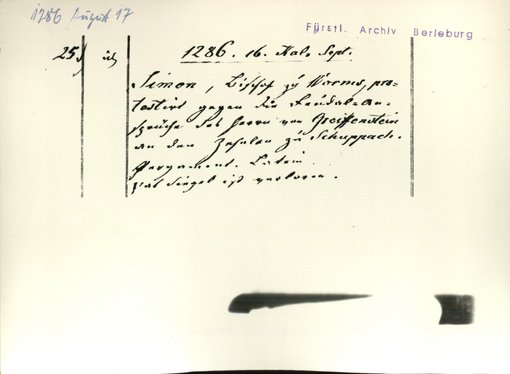 1286 August 17
Fürstl. Archiv Berleburg
25
1286. 16. Kal. Sept.
Simon, Bischof zu Worms, pro-
testirt gegen die Feudal-An-
sprüche des Herrn von Greiffenstein
an den Zehnten zu Schuppach.
Pergament. Latein.
Das Siegel ist verloren.